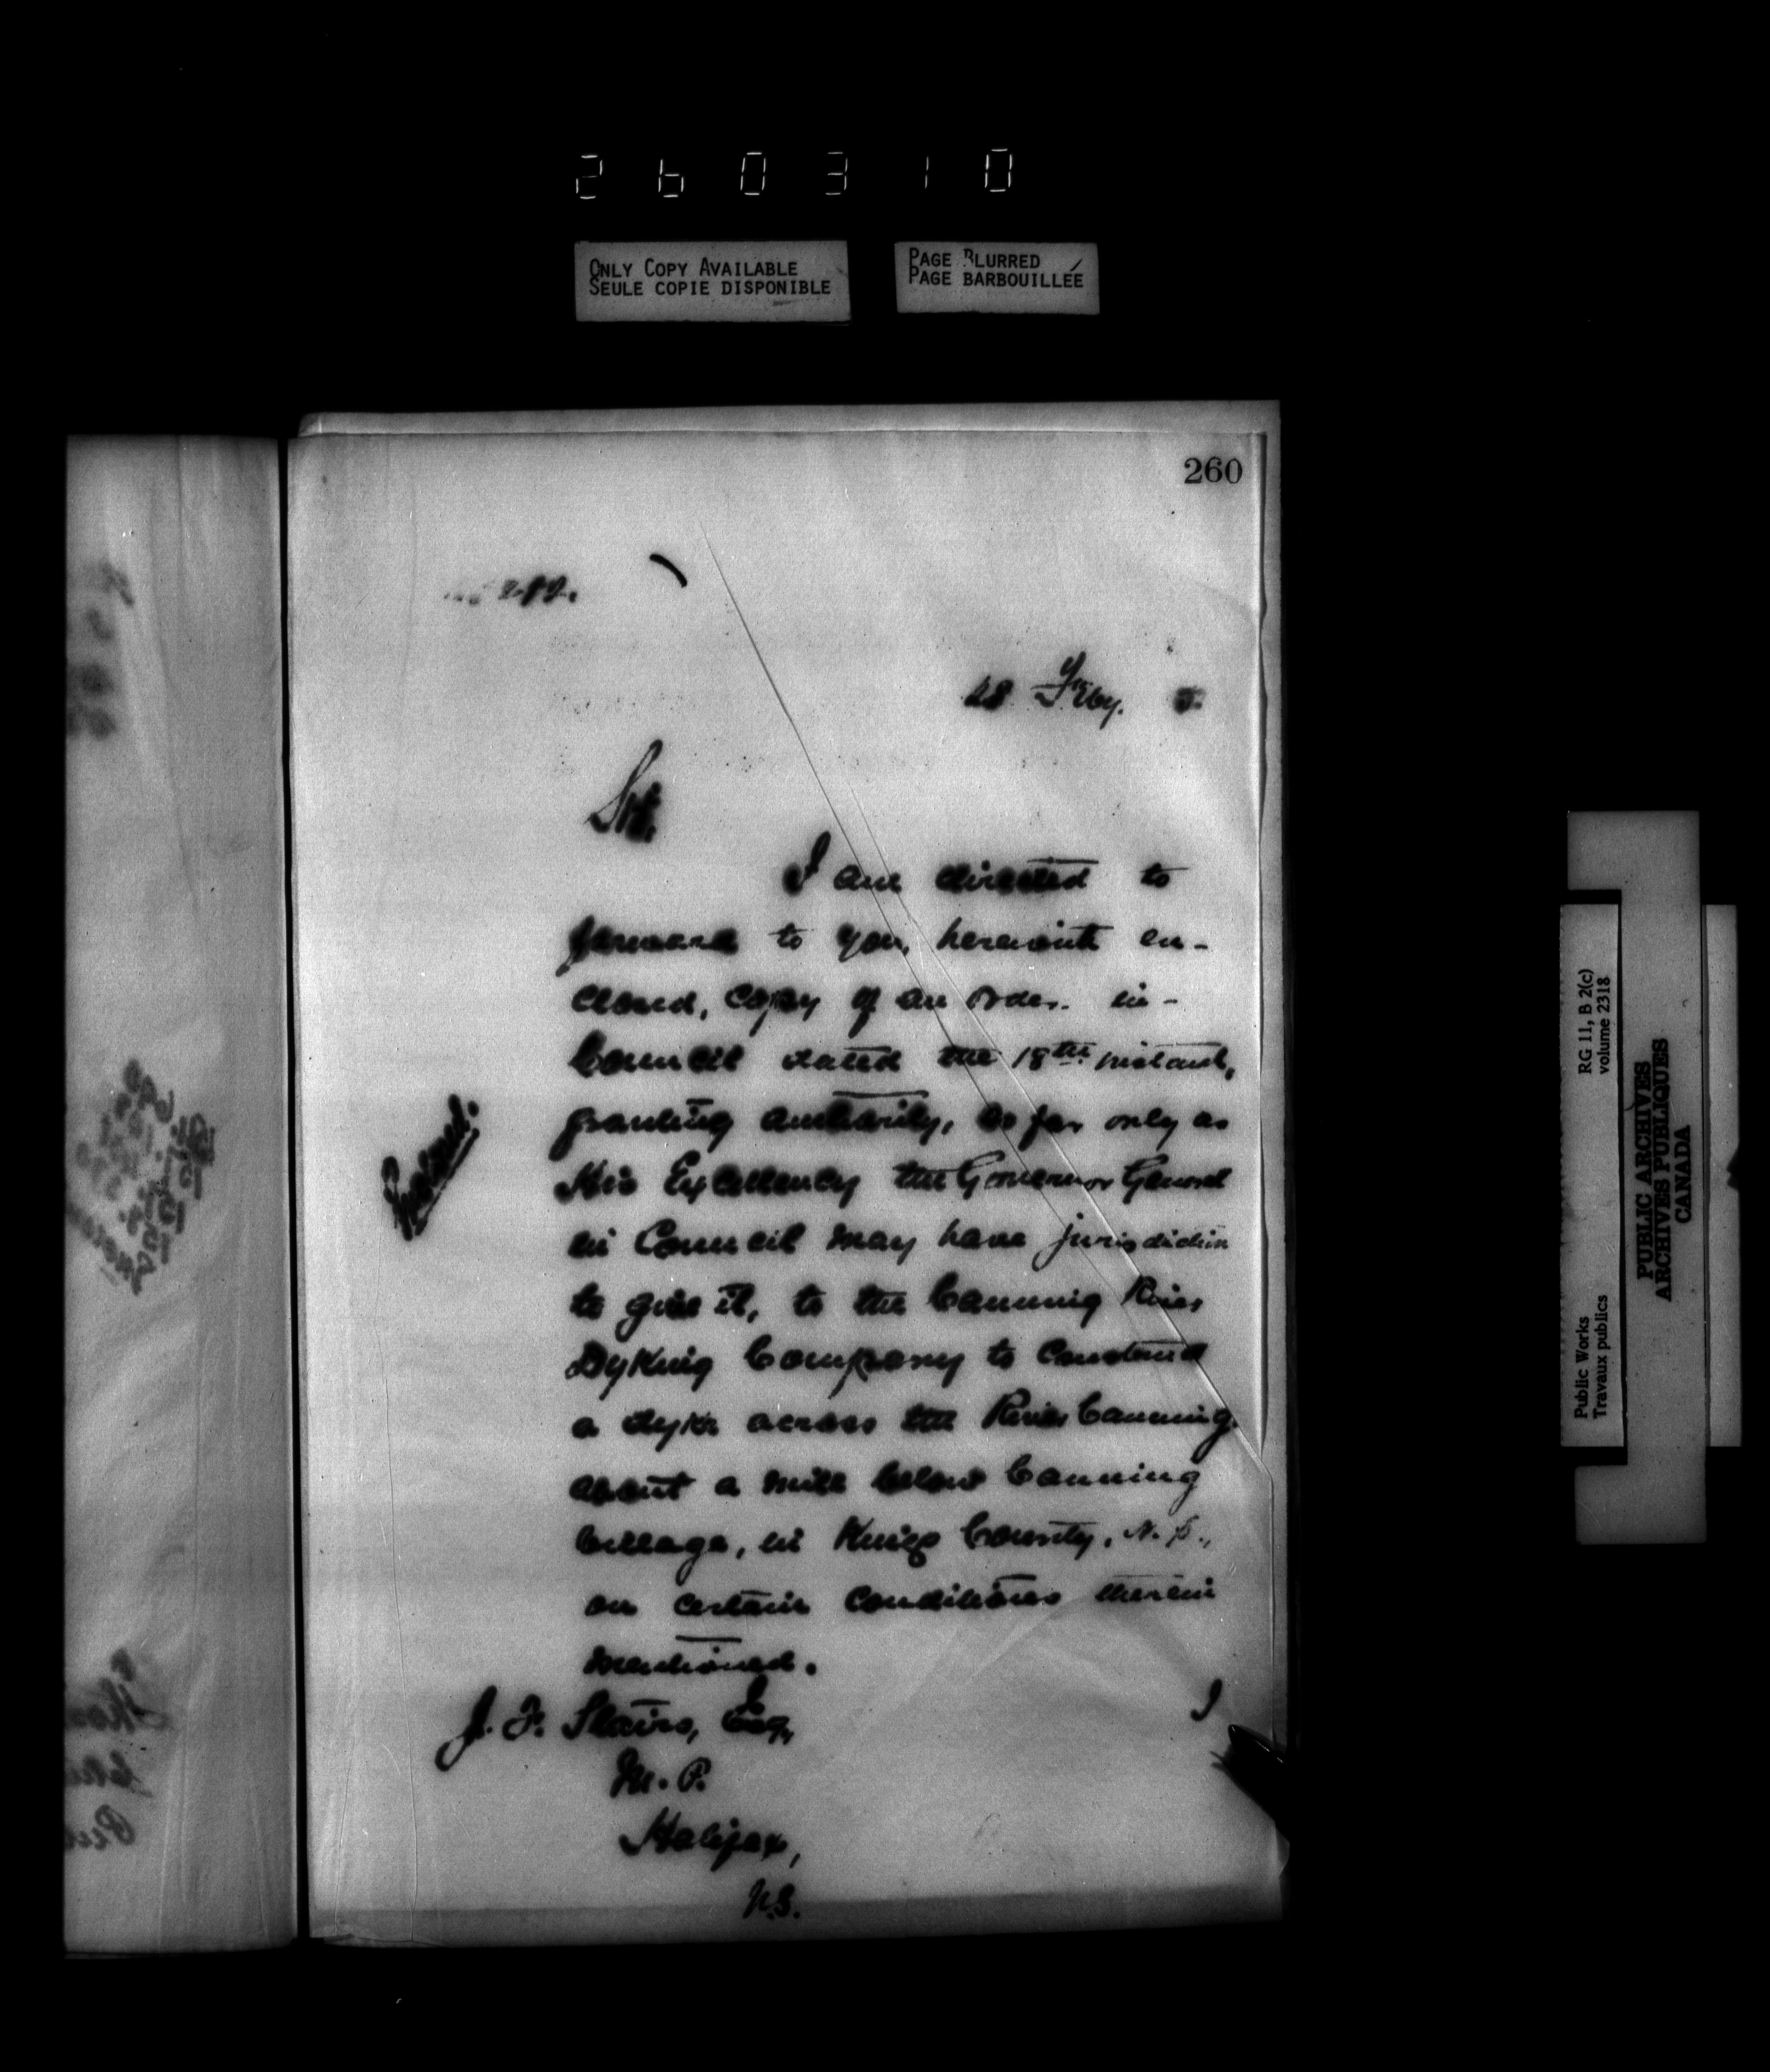 260310
ONLY COPY AVAILABLE
SEULE COPIE DISPONIBLE
PAGE BLURRED
PAGE BARBOUILLÉE
260
28 Feby.
Sir,
I am directed to
forward to you, herewith en-
closed, copy of an Order in
Council dated the 18th instant,
granting authority, so far only as
His Excellency the Governor General
in Council may have jurisdiction
to give it, to the Canning River
Dyking Company to construct
a dyke across the River Canning,
about a mile below Canning
Village, in Kings County, N.S.,
on certain conditions therein
mentioned.
I
J. F. Stairs, Esq,
M. P.
Halifax,
N.S.
RG 11, B 2(c)
volume 2318
Public Works
Travaux publics
PUBLIC ARCHIVES
ARCHIVES PUBLIQUES
CANADA